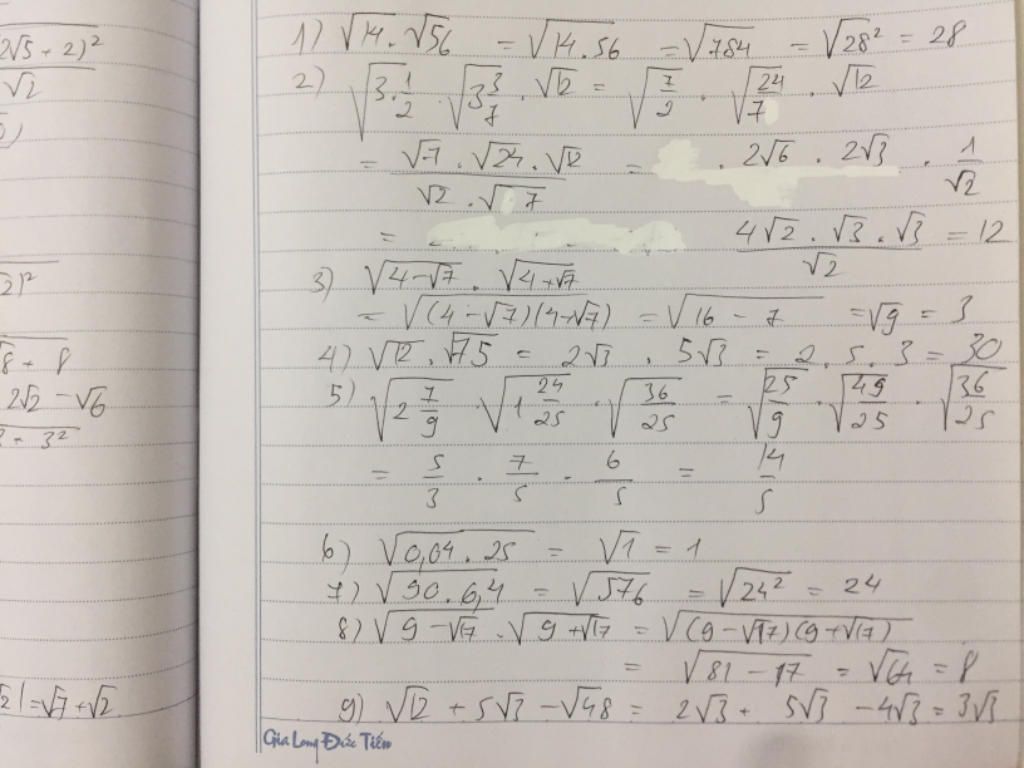 2√5 + 2)²
√2
2)²
√8 + 8
2√2 - √6
3 - 3²
2| = √7 + √2
1) √14 . √56 = √14.56 = √784 = √28² = 28
2) √3.1/2 . √3 3/7 . √12 = √7/2 . √24/7 . √12
= √7 . √24 . √12 / √2 . √7 = . 2√6 . 2√3 . 1/√2
= 4√2 . √3 . √3 / √2 = 12
3) √4-√7 . √4+√7
= √(4-√7)(4+√7) = √16 - 7 = √9 = 3
4) √12 . √75 = 2√3 . 5√3 = 2 . 5 . 3 = 30
5) √2 7/9 . √1 24/25 . √36/25 = √25/9 . √49/25 . √36/25
= 5/3 . 7/5 . 6/5 = 14/5
6) √0,04 . 25 = √1 = 1
7) √90 . 6,4 = √576 = √24² = 24
8) √9 - √17 . √9 + √17 = √(9 - √17)(9 + √17)
= √81 - 17 = √64 = 8
9) √12 + 5√3 - √48 = 2√3 + 5√3 - 4√3 = 3√3
Gia Long Đức Tiến